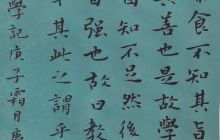 食不知其
其善也是故學
困知不足然後
自強也故曰教
半其此之謂乎
學記庚子霜月